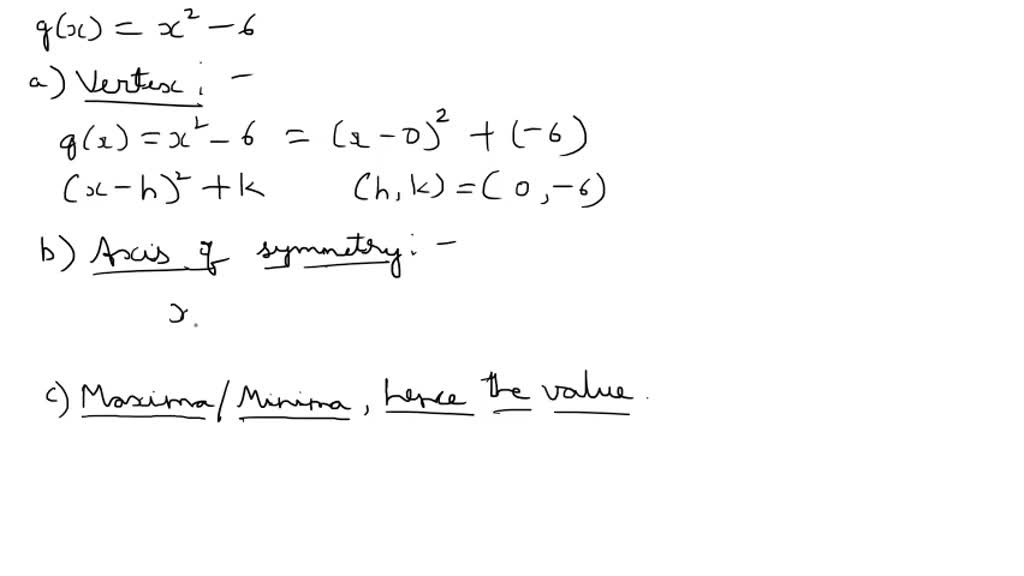 g(x) = x² - 6
a) Vertex: -
g(x) = x² - 6 = (x - 0)² + (-6)
(x - h)² + k (h, k) = (0, -6)
b) Axis of symmetry: -
x
c) Maxima/Minima, hence the value.